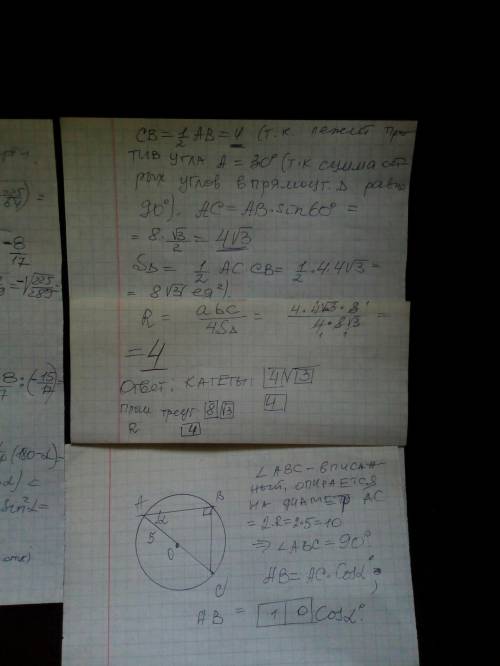 CB = 1/2 AB = 4 (т.к. лежит про-
тив угла A = 30° (т.к сумма ост-
рых углов в прямоуг. Δ равна
90°). AC = AB·sin60° =
= 8·√3/2 = 4√3
SΔ = 1/2 AC·CB = 1/2·4·4√3 =
= 8√3(ед²).
R = abc/4SΔ = 4·4√3·8/4·8√3 =
= 4
Ответ: КАТЕТЫ: 4√3
4
прям треуг 8√3
R 4
∠ABC - ВПИСАН-
НЫЙ, ОПИРАЕТСЯ
НА ДИАМЕТР AC
= 2·R = 2·5 = 10
⇒ ∠ABC = 90°.
AB = AC·Cosα°;
AB = 10 Cosα°.
A
B
α
5
O
C
-8/17
(180-α)-
sin²α=